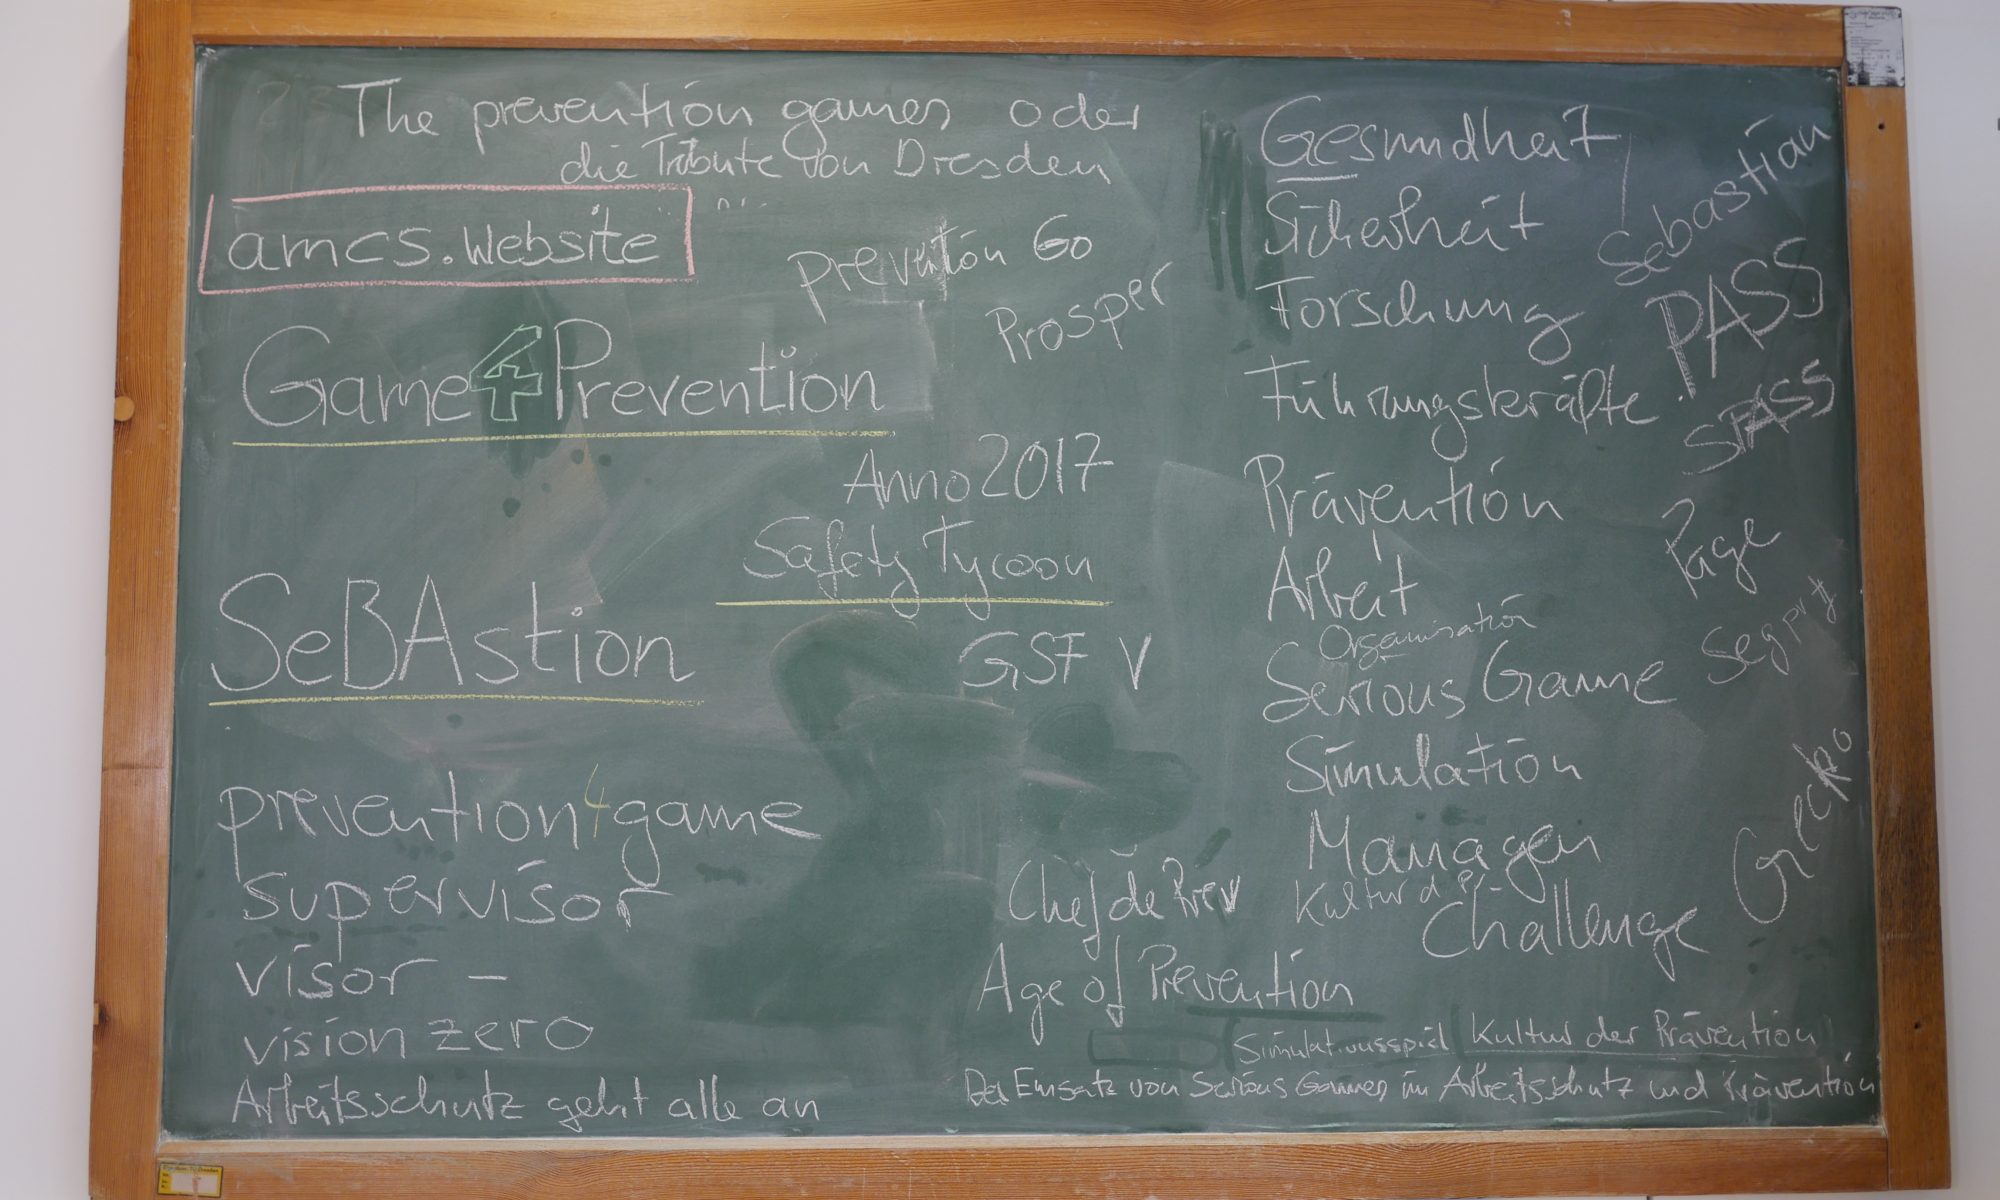 The prevention games oder
die Tribute von Dresden
amcs.website
prevention Go
Prosper
Game4Prevention
Anno 2017
Safety Tycoon
SeBAstion
GSF V
prevention4game
supervisor
visor –
vision zero
Arbeitsschutz geht alle an
Chef de Prev
Age of Prevention
Gesundheit
Sicherheit
Forschung
Führungskräfte
Prävention
Arbeit
Organisation
Serious Game
Simulation
Managen
Kultur d.
Challenge
Sebastian
PASS
SPASS
Page
Grecko
Simulationsspiel Kultur der Prävention
Der Einsatz von Serious Games im Arbeitsschutz und Prävention